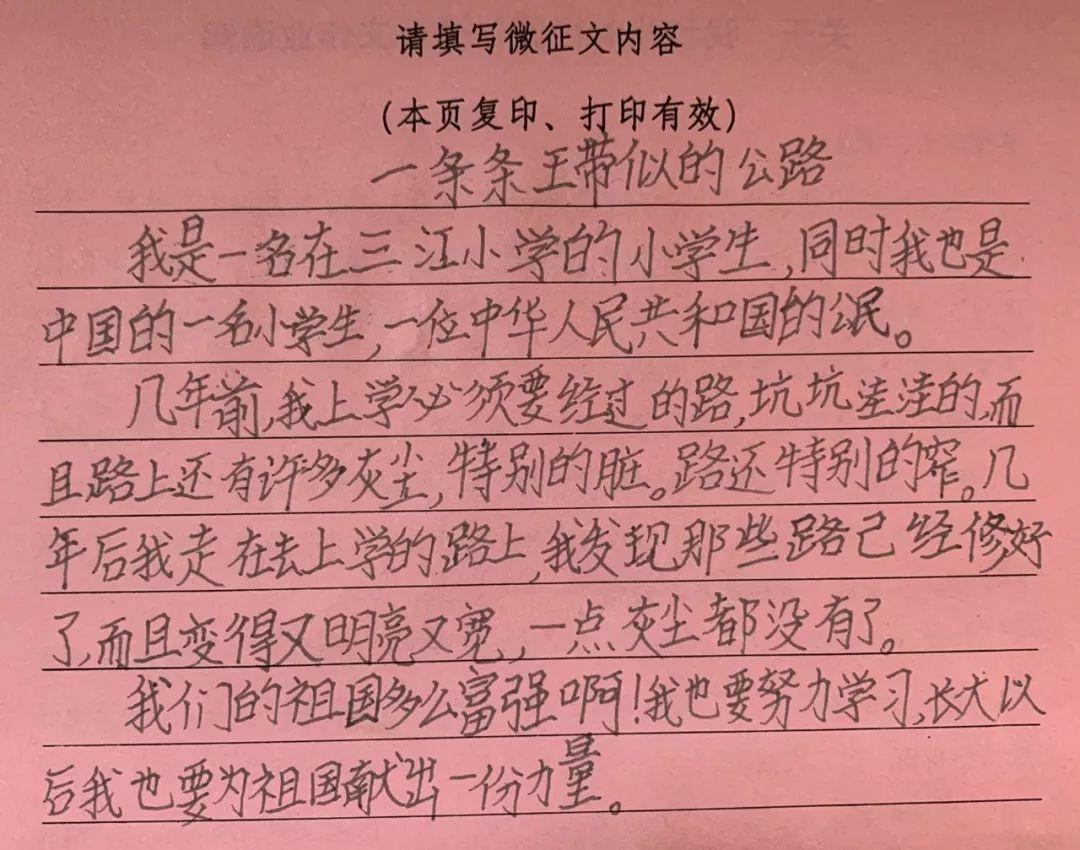 请填写微征文内容
（本页复印、打印有效）
一条条王带似的公路
我是一名在三江小学的小学生,同时我也是
中国的一名小学生,一位中华人民共和国的公民。
几年前,我上学必须要经过的路,坑坑洼洼的,而
且路上还有许多灰尘,特别的脏。路还特别的窄。几
年后我走在去上学的路上,我发现那些路己经修好
了,而且变得又明亮又宽,一点灰尘都没有了。
我们的祖国多么富强啊!我也要努力学习,长大以
后我也要为祖国献出一份力量。